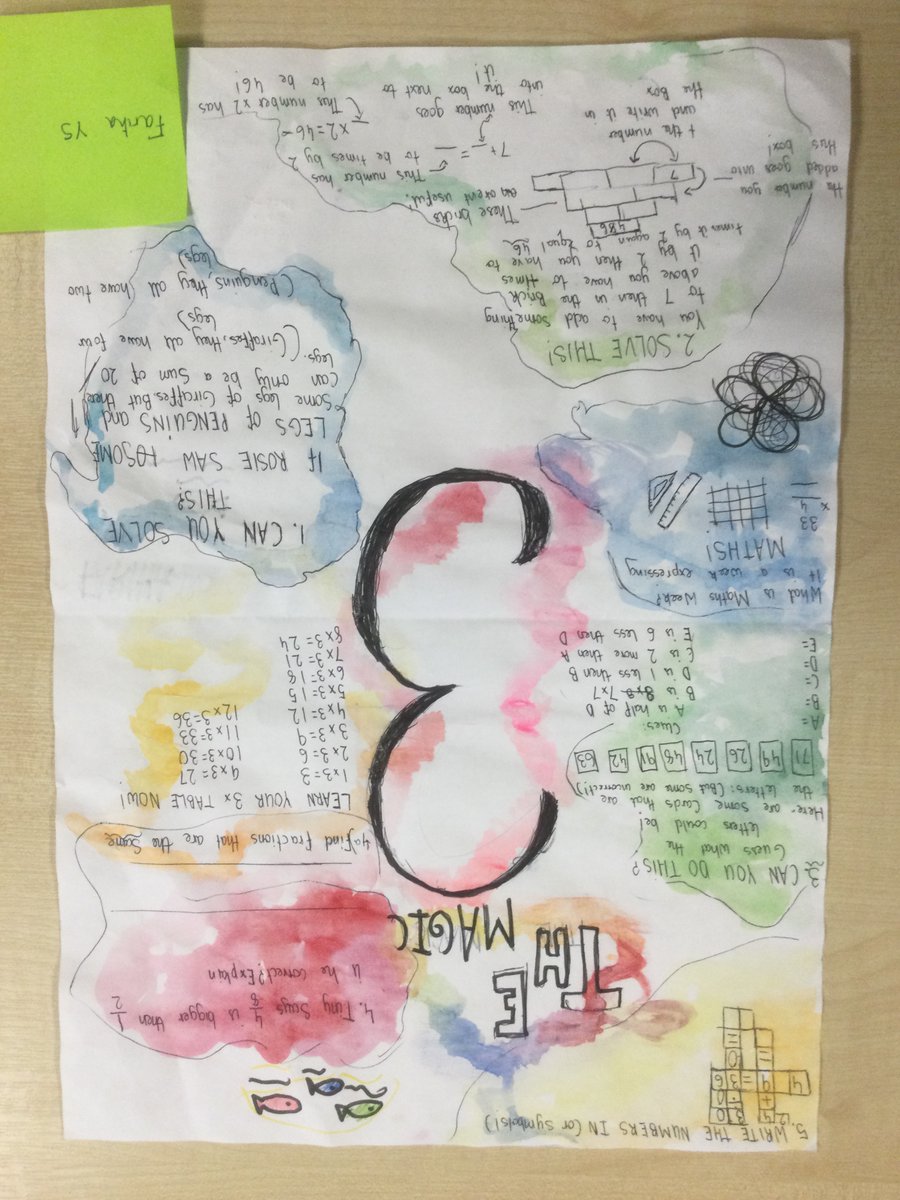 5. WRITE THE NUMBERS IN (or symbols!)
4 9 = 3 6
THE
MAGIC
3
4. Tiny says 4/8 is bigger then 1/2
is he correct? Explain
4a) Find fractions that are the same
3. CAN YOU DO THIS?
Guess what the
letters could be!
Here are some cards that are
the letters: (But some are incorrect!)
71 49 26 24 48 42 63
Clues:
A= A is half of D
B= B is 7x7
C= D is 1 less then B
D= C is 2 more then A
E= E is 6 less then D
LEARN YOUR 3x TABLE NOW!
1x3=3 9x3=27
2x3=6 10x3=30
3x3=9 11x3=33
4x3=12 12x3=36
5x3=15
6x3=18
7x3=21
8x3=24
What is Maths Week?
It is a week expressing
MATHS!
33
x 4
1. CAN YOU SOLVE
THIS?
IF ROSIE SAW SOME
LEGS OF PENGUINS and
Some legs of Giraffes. But there
can only be a sum of 20
legs. (Giraffes, they all have four
legs)
(Penguins, they all have two
legs)
2. SOLVE THIS!
You have to add something
to 7 then in the Brick
above you have to times
it by 2 then you have to
times it by 2 again to equal 46
486
7
These bricks
arent useful.
the number you
added goes unto
this box!
+ the number
and write it in
the box
7+__=__
This number has
to be times by 2
This number goes
unto the box next to
it!
x2=46
This number x2 has
to be 46!
Fariha Y5